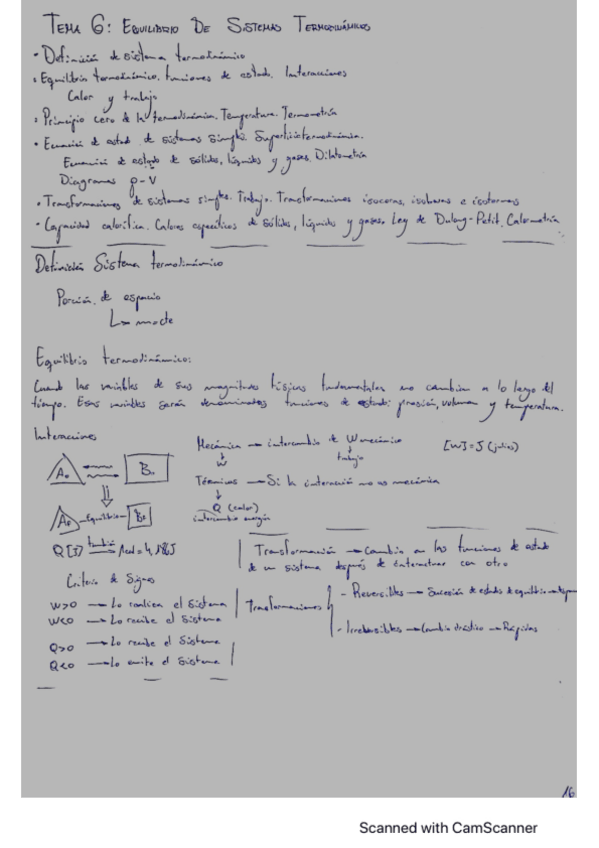 TEMA 6: EQUILIBRIO DE SISTEMAS TERMODINÁMICOS
· Definición de sistema termodinámico
· Equilibrio termodinámico. Funciones de estado. Interacciones
Calor y trabajo
· Principio cero de la termodinámica. Temperatura. Termometría
· Ecuación de estado de sistemas simples. Superficie termodinámica.
Ecuación de estado de sólidos, líquidos y gases. Dilatometría
Diagramas p-V
· Transformaciones de sistemas simples. Trabajo. Transformaciones isocoras, isobaras e isotermas
· Capacidad calorífica. Calores específicos de sólidos, líquidos y gases. Ley de Dulong-Petit. Calorimetría
Definición Sistema termodinámico
Porción de espacio
Equilibrio termodinámico:
Cuando las variables de sus magnitudes físicas fundamentales no cambian a lo largo del
tiempo. Esas variables serán denominadas funciones de estado: presión, volumen y temperatura.
Interacciones
Mecánica → intercambio de W mecánico
[W]=J (julios)
W
trabajo
A₀ B₀
Térmicas → Si la interacción no es mecánica
Q (calor)
intercambio energía
Equilibrio
Q [J] también 1cal = 4,186J
Transformación → Cambio en las funciones de estado
de un sistema después de interactuar con otro
Criterio de Signos
W>0 → Lo realiza el Sistema
W<0 → Lo recibe el Sistema
Q>0 → Lo recibe el Sistema
Q<0 → Lo emite el Sistema
Transformaciones
- Reversibles → Sucesión de estados de equilibrio
- Irreversibles → Cambio drástico → Rápidas
16
Scanned with CamScanner